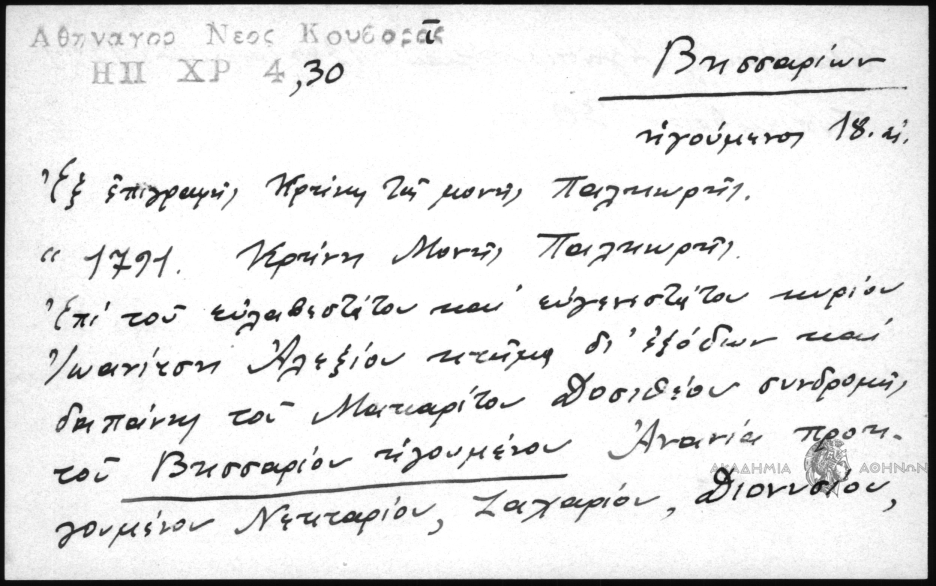 Αθηναγορ Νεος Κουβαρᾶς
ΗΠ ΧΡ 4,30
Βησσαρίων
ἡγούμενος 18. αἰ.
Ἐξ ἐπιγραφῆς Κρήνη τῆς μονῆς Παληωρῆς.
" 1791. Κρήνη Μονῆς Παληωρῆς.
Ἐπί τοῦ εὐλαβεστάτου καί εὐγενεστάτου κυρίου
Ἰωανίτση Ἀλεξίου κτῆμα δι' ἐξόδων καί
δαπάνη τοῦ Μακαρίτου Δοσιθέου συνδρομῆς
τοῦ Βησσαρίου ἡγουμένου Ἀνανία προη-
γουμένου Νεκταρίου, Ζαχαρίου, Διονυσίου,
ΑΚΑΔΗΜΙΑ ΑΘΗΝΩΝ